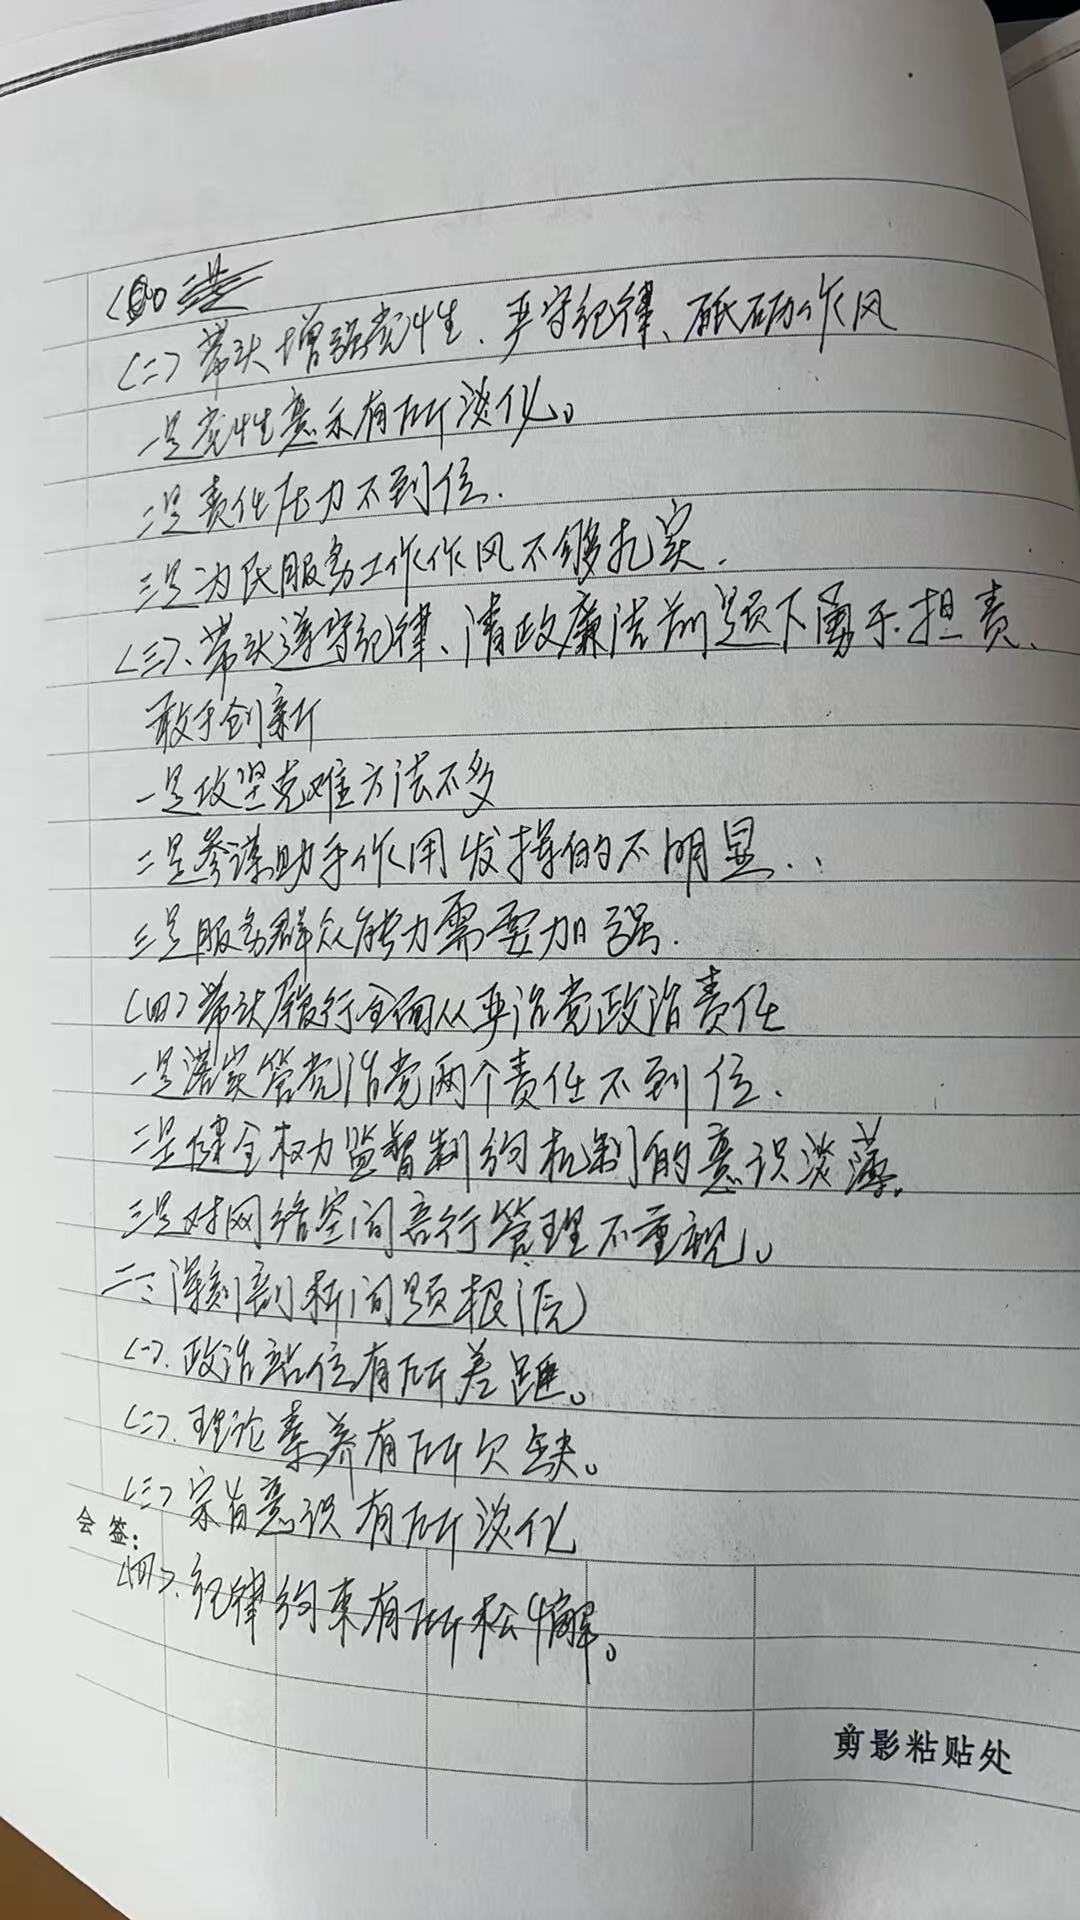 (二)带头增强党性、严守纪律、砥砺作风
一是党性意示有所淡化。
二是责任压力不到位.
三是为民服务工作作风不够扎实.
(三)、带头遵守纪律、清政廉洁前题下勇于担责、
敢于创新
一是攻坚克难方法不多
二是参谋助手作用发挥的不明显.
三是服务群众能力需要加强.
(四)带头履行全面从严治党政治责任
一是落实管党治党两个责任不到位.
二是健全权力监督制约机制的意识淡薄.
三是对网络空间言行管理不重视。
二、深刻剖析问题根源
(一).政治站位有所差距。
(二).理论素养有所欠缺。
(三)宗旨意识有所淡化
会签:
(四).纪律约束有所松懈。
剪影粘贴处